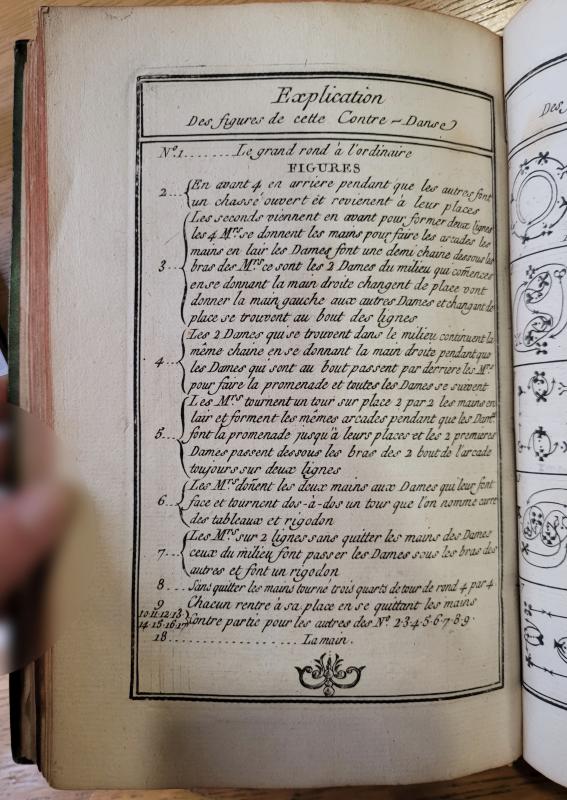 Explication
Des figures de cette Contre-Danse
Nº. 1........Le grand rond à l'ordinaire
FIGURES
2... En avant 4 en arriere pendant que les autres font
un chassé ouvert et revienent à leur places
3... Les seconds viennent en avant pour former deux lignes
les 4 Mrs. se donnent les mains pour faire les arcades les
mains en lair les Dames font une demi chaine dessous les
bras des Mrs ce sont les 2 Dames du milieu qui comencent
en se donnant la main droite changent de place vont
donner la main gauche aux autres Dames et changent de
place se trouvent au bout des lignes
4... Les 2 Dames qui se trouvent dans le milieu continuent la
même chaine en se donnant la main droite pendant que
les Dames qui sont au bout passent par derriere les Mrs
pour faire la promenade et toutes les Dames se suivent
5... Les Mrs tournent un tour sur place 2 par 2 les mains en
lair et forment les mêmes arcades pendant que les Dames
font la promenade jusqu'à leurs places et les 2 premieres
Dames passent dessous les bras des 2 bout de l'arcade
toujours sur deux lignes
6... Les Mrs doñent les deux mains aux Dames qui leur font
face et tournent dos-à-dos un tour que l'on nomme carré
des tableaux et rigodon
7... Les Mrs sur 2 lignes sans quitter les mains des Dames
ceux du milieu font passer les Dames sous les bras des
autres et font un rigodon
8... Sans quitter les mains tourne trois quarts de tour de rond 4 par 4
9 Chacun rentre à sa place en se quittant les mains
10·11·12·13·
14·15·16·17 Contre partie pour les autres des Nº. 2·3·4·5·6·7·8·9·
18.....................La main.
Des